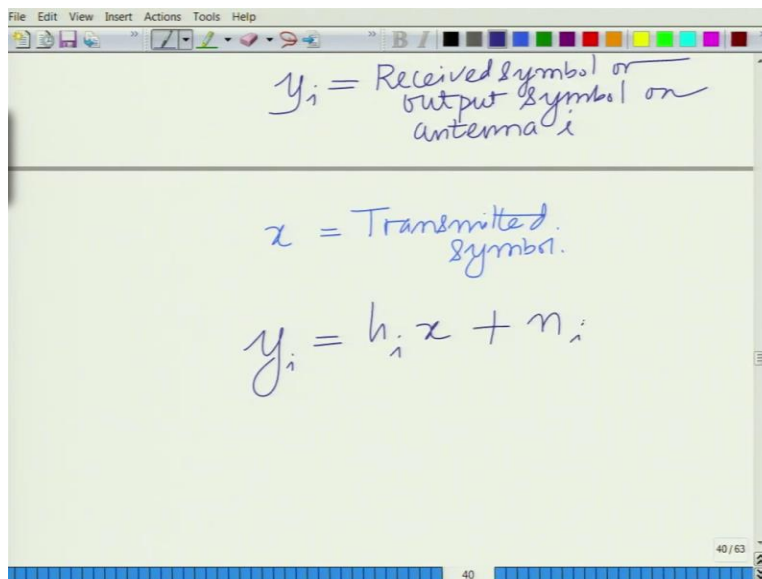 File Edit View Insert Actions Tools Help
B I
yᵢ = Received symbol or
output symbol on
antenna i
x = Transmitted
symbol.
yᵢ = hᵢ x + nᵢ
40/63
40